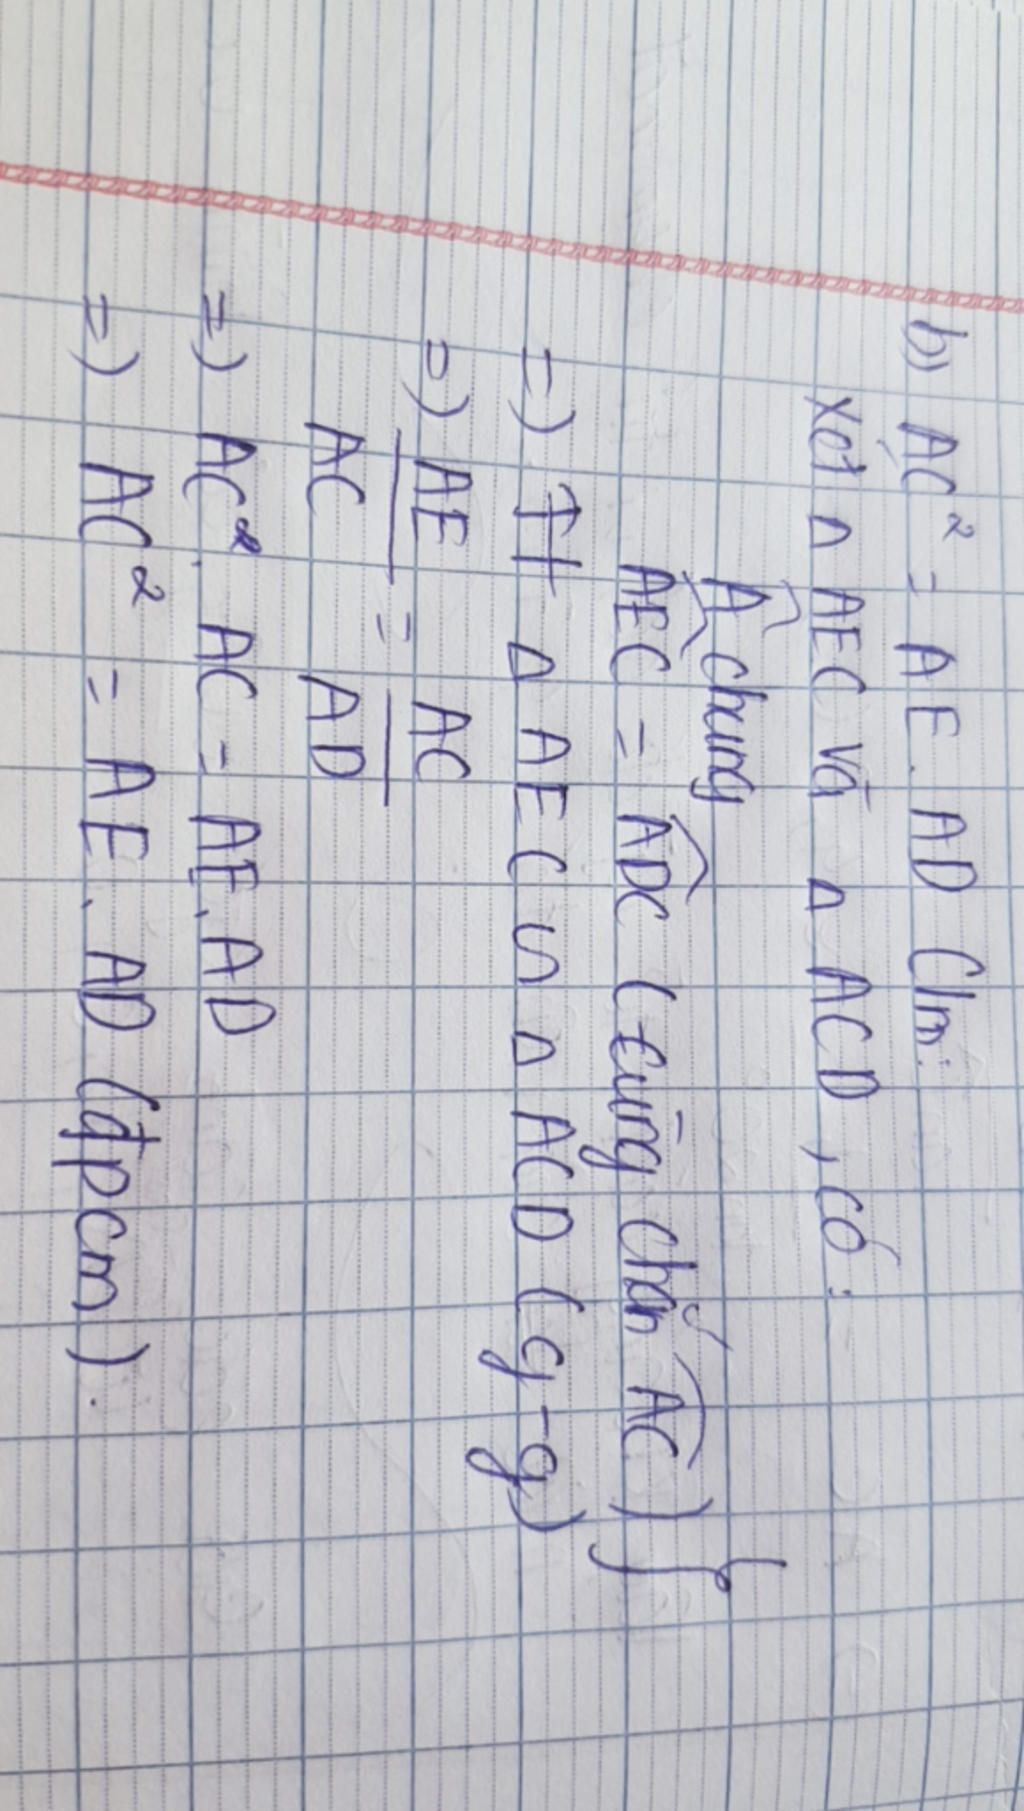 b) AC² = AE. AD C/m:
Xét Δ AEC và Δ ACD, có:
Â chung
AEC = ADC (cùng chắn AC) }
=) Δ AEC ᔕ Δ ACD (g-g)
=) AE/AC = AC/AD
=) AC². AC = AE. AD
=) AC² = AE. AD (đpcm).